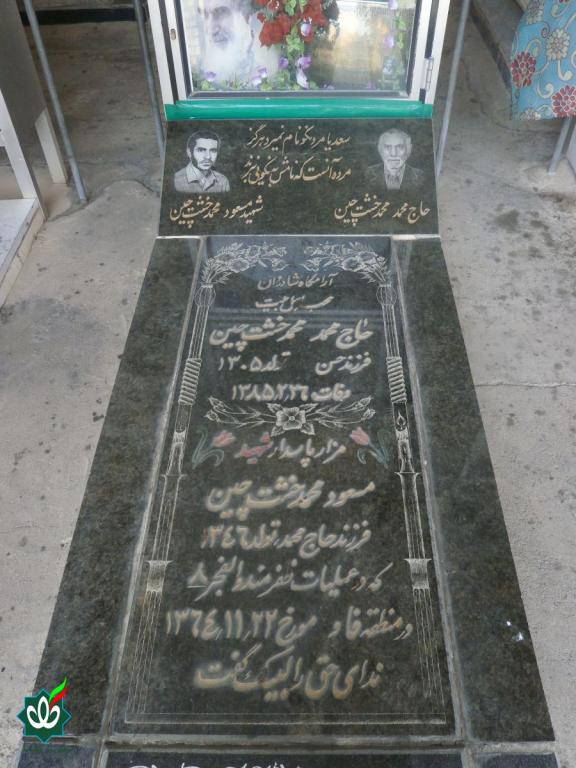 سعدیا مرد نکونام نمیرد هرگز
مرده آنست که نامش به نیکویی نبرند
حاج محمد محمدخشت چین
شهید مسعود محمدخشت چین
آرامگاه شادروان
محب اهل بیت
حاج محمد محمدخشت چین
فرزند حسن تولد ۱۳۰۵
وفات ۱۳۸۵٫۲٫۲۶
مزار پاسدار شهید
مسعود محمدخشت چین
فرزند حاج محمد تولد ۱۳۴۶
که در عملیات ظفرمند والفجر ۸
در منطقه فاو مورخ ۱۳۶۴٫۱۱٫۲۲
ندای حق را لبیک گفت